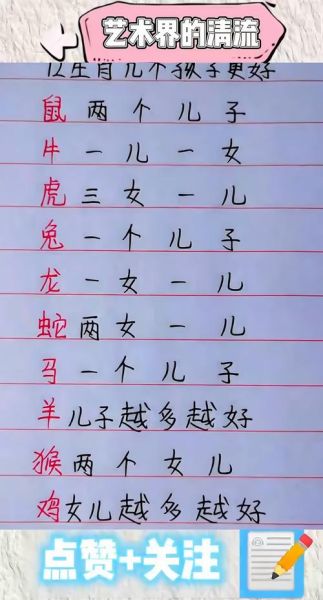 艺术界的清流
12生肖几个孩子更好
鼠两个儿子
牛一儿一女
虎三女一儿
兔一个儿子
龙一女一儿
蛇两女一儿
马一个儿子
羊儿子越多越好
猴两个女儿
鸡女儿越多越好
点赞+关注